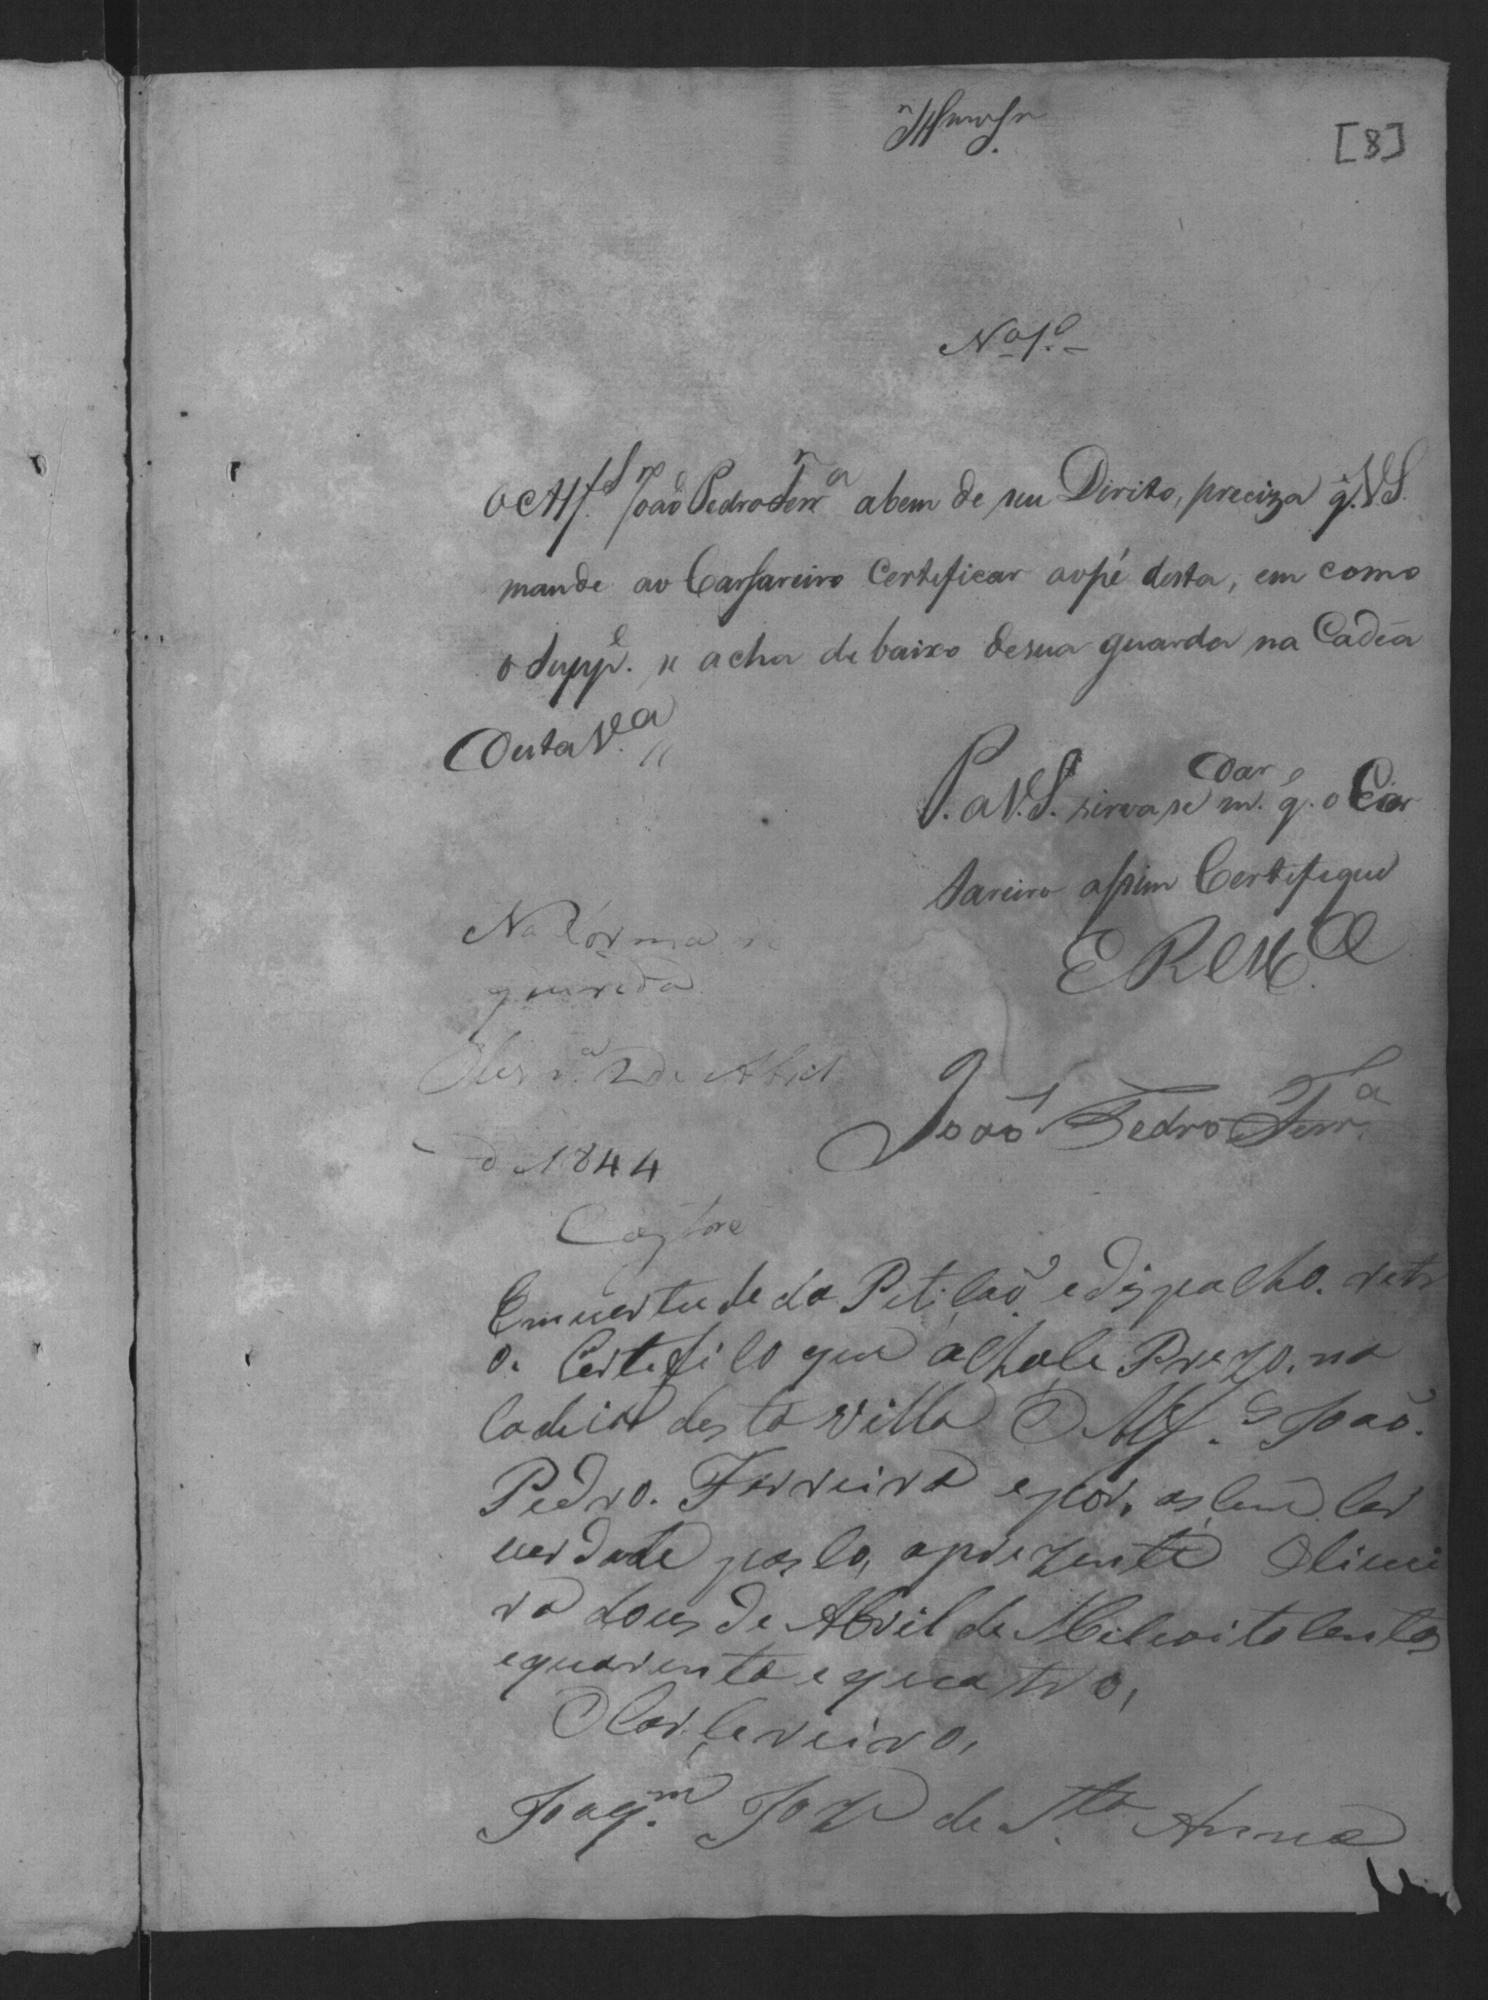 Illmo Sr.
[8]
No 1.o
O Alfs João Pedro Ferra abem de seu Dirito, preciza q. V. S.
mande ao Carsareiro Certeficar aopé desta, em como
o Supp.e se acha de baixo de sua guarda na Cadea
desta V.a
P. a V. S. sirva se mdar q.e o Car
sareiro assim Certifique
E R M.ce
Na forma re
querida
Olivr.a 2 de Abril
de 1844
João Pedro Ferr.a
Em uertude da Petição e dispacho retr
o. Certefico que achace Prezo, na
cadeia desta villa O Alf.s João.
Pedro. Ferreira e por, ascim cer
uerdade paço, a prezente Oliuei
ra dous de Abril de Mil e oito centos
e quarenta e quatro,
O Carcereiro,
Joaq.m Joze de S.ta Anna